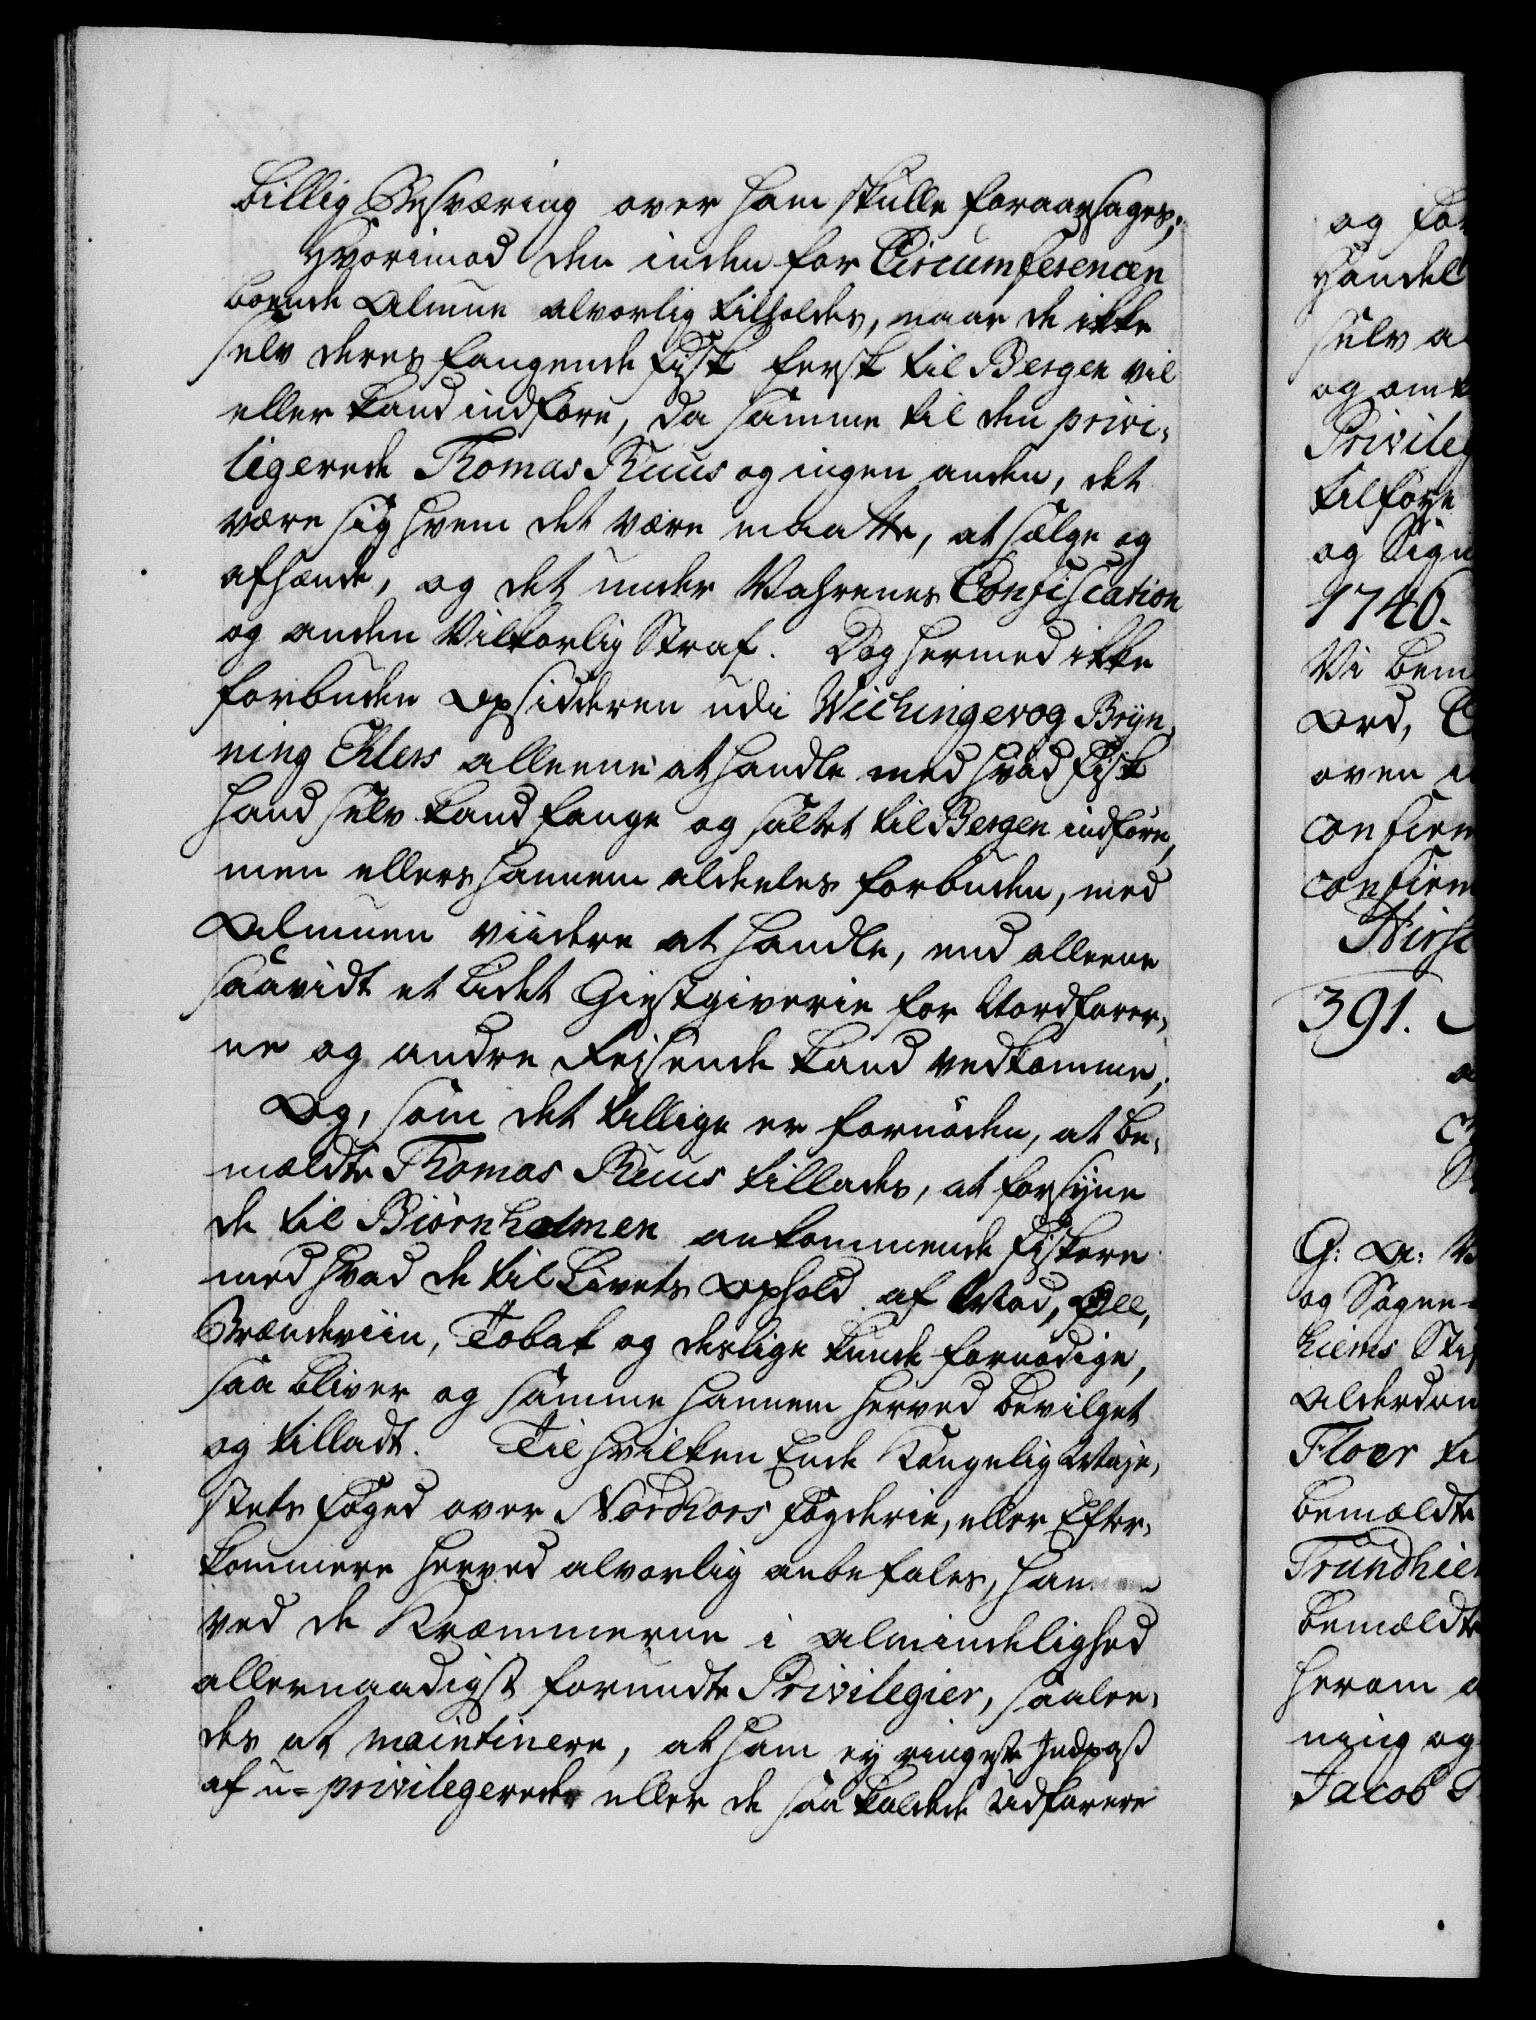 billig Besværing over ham skulle foraarsages;
Hvorimod den inden for Circumferencen
boende Almue alvorlig tilholdes, naar de ikke
selv deres fangende Fisk fersk til Bergen vil
eller kand indføre, da samme til den privi-
ligerede Thomas Ruus og ingen anden, det
være sig hvem det være maatte, at sælge og
afhænde, og det under Vahrenes Confiscation
og anden Vilkorlig Straf. Dog hermed ikke
forbuden Opsidderen udi Wichingevog Bryn-
ning Ehlers alleene at handle med hvad Fisk
hand selv kand fange og saltet til Bergen indføre,
men ellers hannem aldeeles forbuden, med
Almuen viidere at handle, end alleene
saavidt et lidet Giestgiverie for Nordfarer-
ne og andre Reisende kand vedkomme;
Og, som det tillige er fornøden, at be-
mældte Thomas Ruus tillades, at forsyne
de til Biørnholmen ankommende Fiskere
med hvad de til Livets Ophold af Mad, Øll,
Brændeviin, Tobak og deslige kunde fornødige,
saa bliver og samme hannem herved bevilget
og tilladt. Til hvilken Ende Kongelig Maje-
stets Foged over Nordhors Fogderie, eller Efter-
kommere herved alvorlig anbefales, ham
ved de Kræmmerne i Almindelighed
allernaadigst forundte Privilegier, saalee-
des at maintinere, at ham ey ringeste Indpas
af u-privilegerede eller de saa kaldede Udfarere
og for
Handel
selv a
og omk
Privileg
tilføye
og Sign
1746.
Vi bem
Ord, C
oven i
confirm
confirm
Hirsc
391.
G: A: V
og Sogne-
hiems Stif
Alderdom
Floer ti
bemældte
Trundhiem
bemældte
herom a
ning og
Jacob